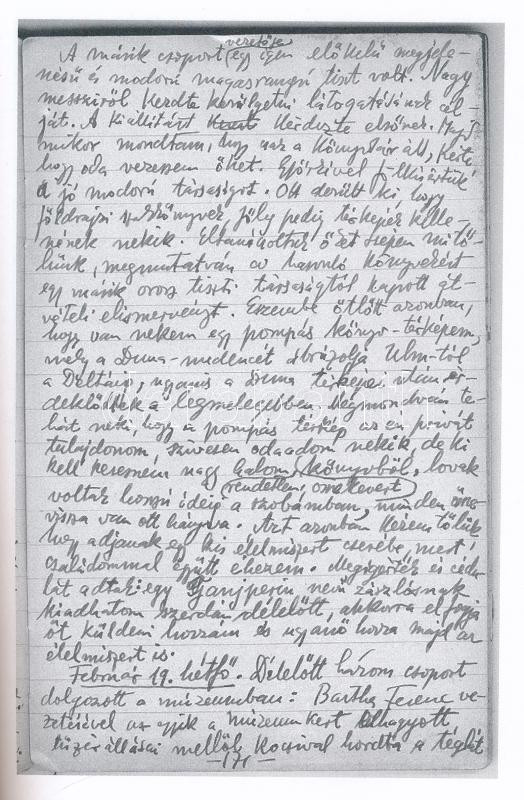 vezetője
A másik csoport egy igen előkelő megjele-
nésű és modorú magasrangú tiszt volt. Nagy
messziről kezdte körülgetni látogatásának cél-
ját. A kiállítást kérdezte elsőnek. Majd
mikor mondtam, hogy az a Könyvtár áll, kérte
hogy oda vezessem őket. Györkével felkísértük
a jó modorú társaságot. Ott derült ki, hogy
földrajzi szakkönyvek, főleg pedig térképek kelle-
nének nekik. Eltanácsoltuk őket szépen mitő-
lünk, megmutatván a hasonló könyvekért
egy másik orosz tiszti társaságtól kapott át-
vételi elismervényt. Eszembe ötlött azonban,
hogy van nekem egy pompás könyv-térképem,
mely a Duna-medencét ábrázolja Ulm-tól
a Deltáig, ugyanis a Duna térképe után ér-
deklődtek a legmelegebben. Megmondván te-
hát nekik, hogy a pompás térkép az én privát
tulajdonom, szívesen odaadom nekik, de ki
kell keresnem nagy halom könyvből, lovak
rendetlen, összekevert
voltak hosszú ideig a szobámban, minden össze-
vissza van ott hányva. Azt azonban kérem tőlük
hogy adjanak egy kis élelmiszert cserébe, mert
családommal együtt éhezem. Megígérték és cédu-
lát adtak: egy nevű zászlósnak
kiadhatom szerdán délelőtt, akkorra el fogja
őt küldeni hozzám és ugyanő hozza majd az
élelmiszert is.
Február 19. hétfő. Délelőtt három csoport
dolgozott a múzeumban: Bartha Ferenc ve-
zetésével az egyik a múzeumkert elhagyott
tüzérállásai mellől kocsival hordta a téglát
—171—